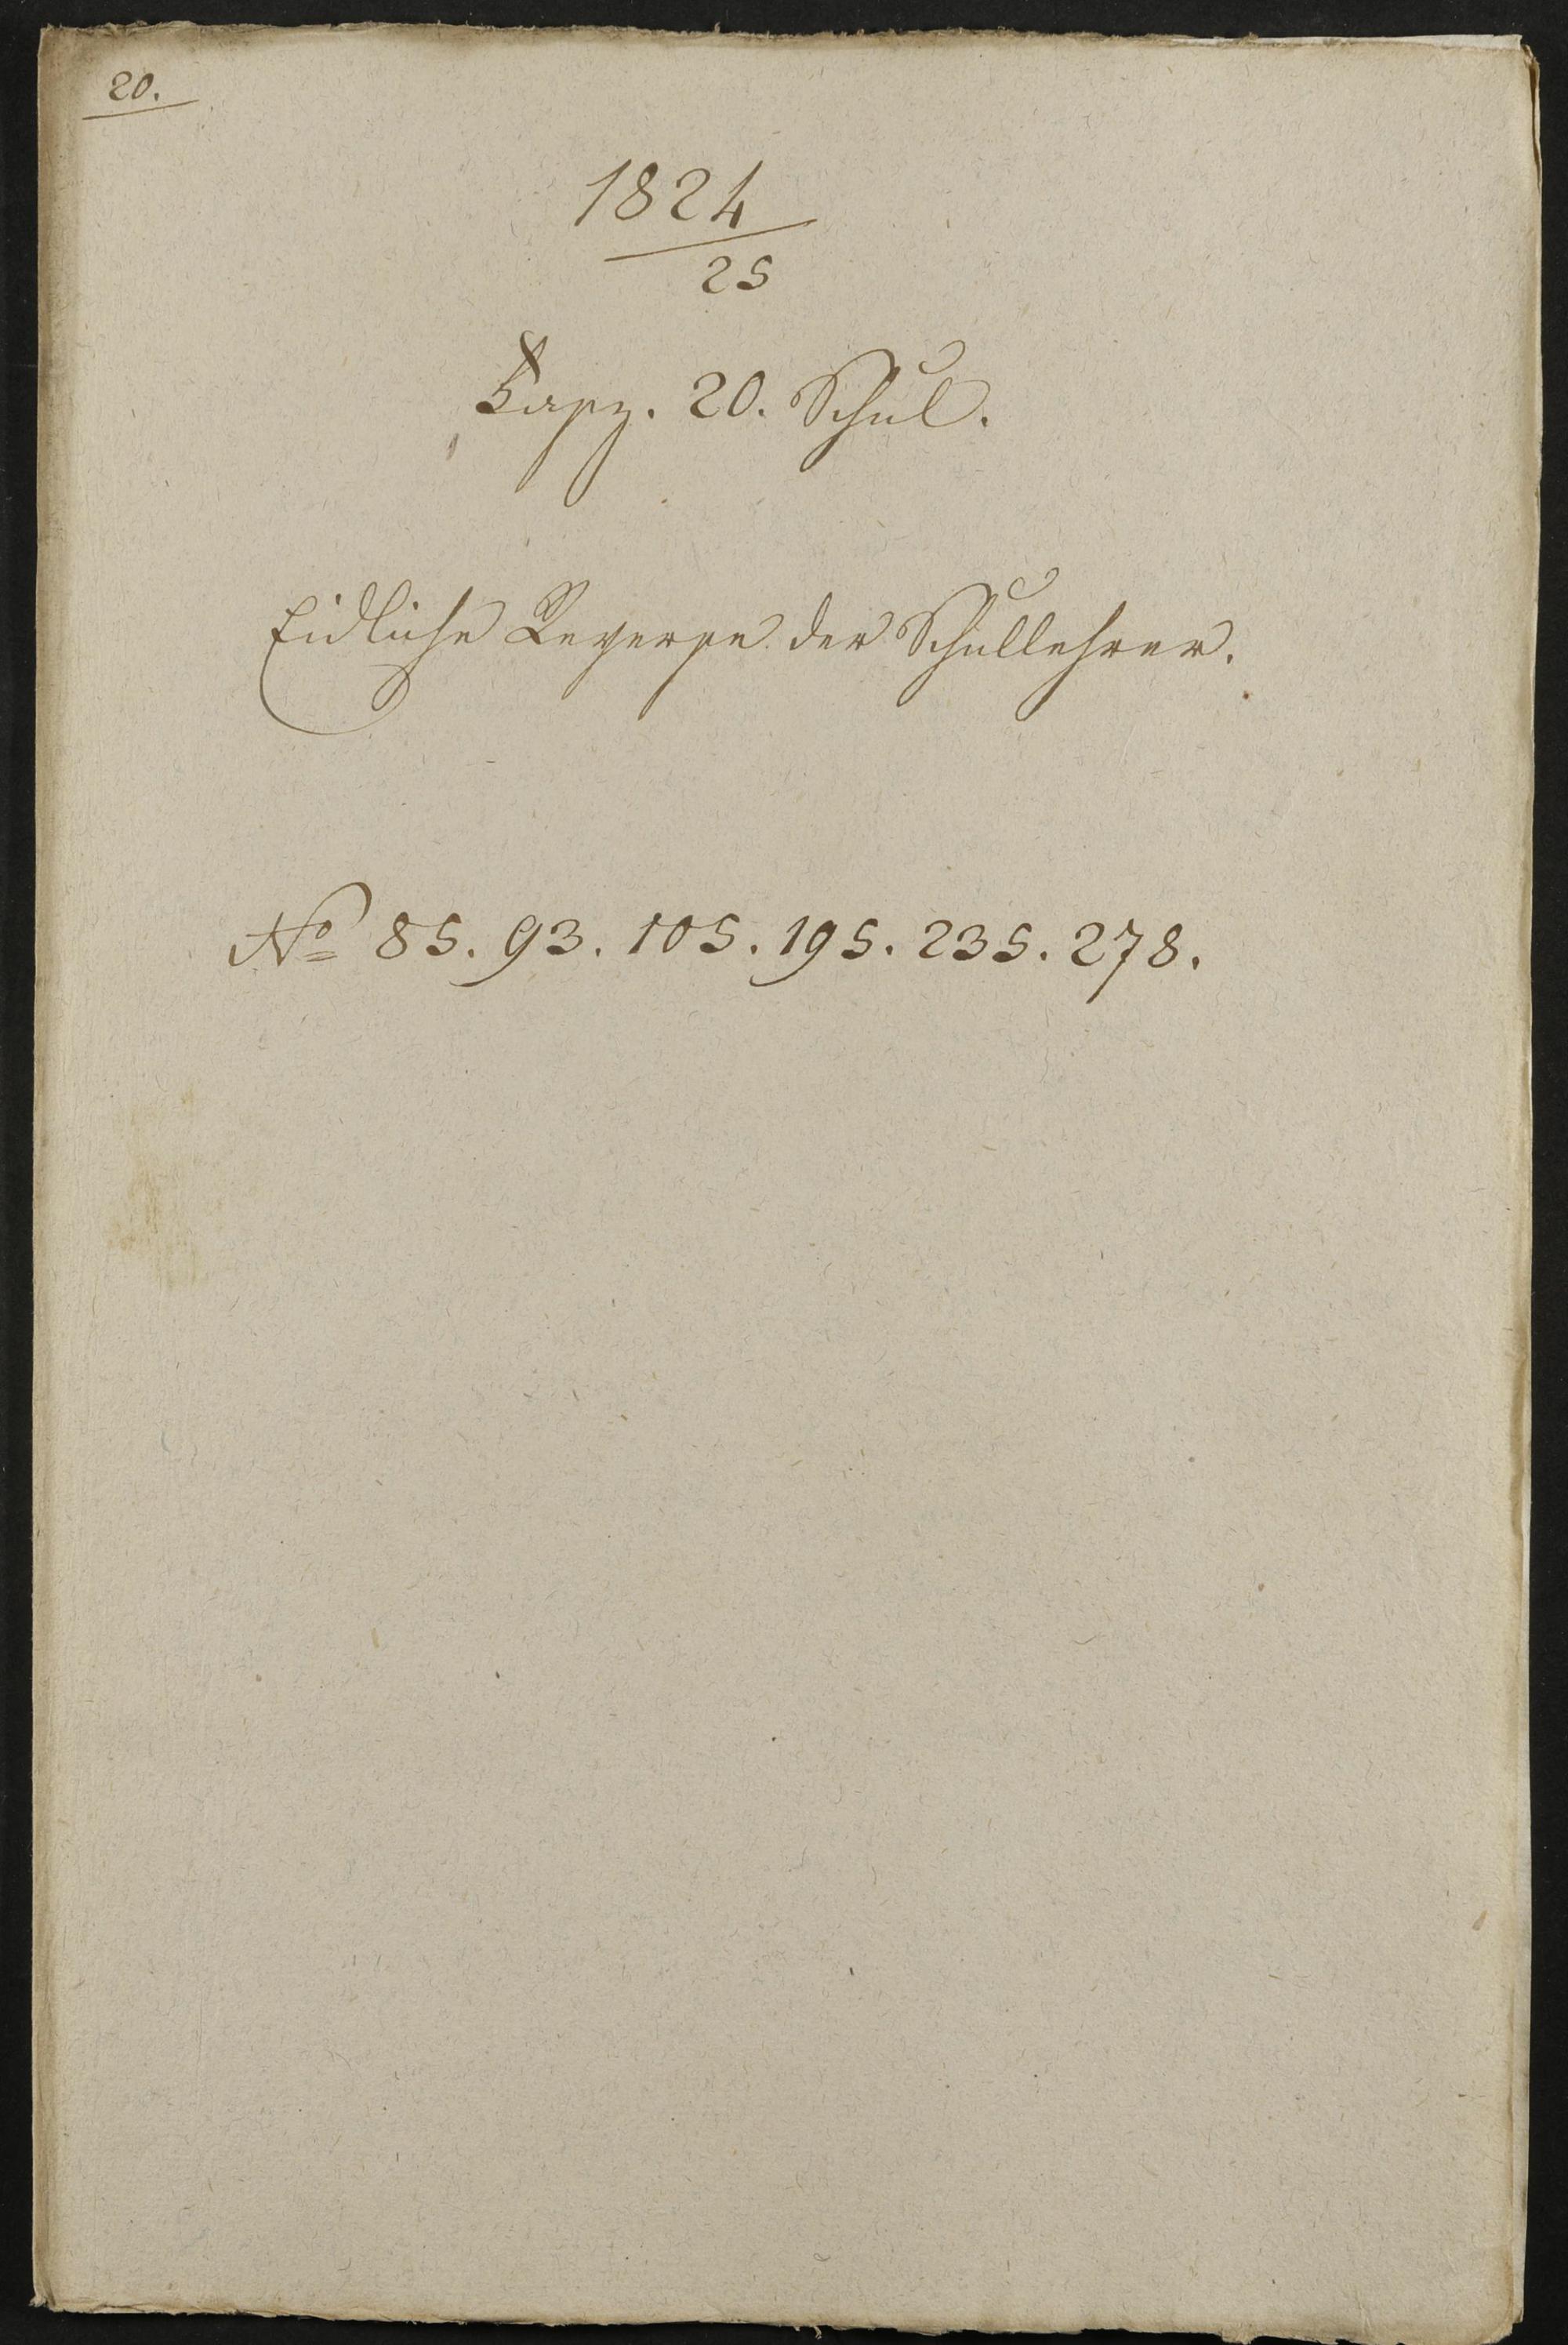 20.
1824
25
Fasz. 20. Schul.
Eidliche Reverse der Schullehrer.
No 85. 93. 105. 195. 235. 278.